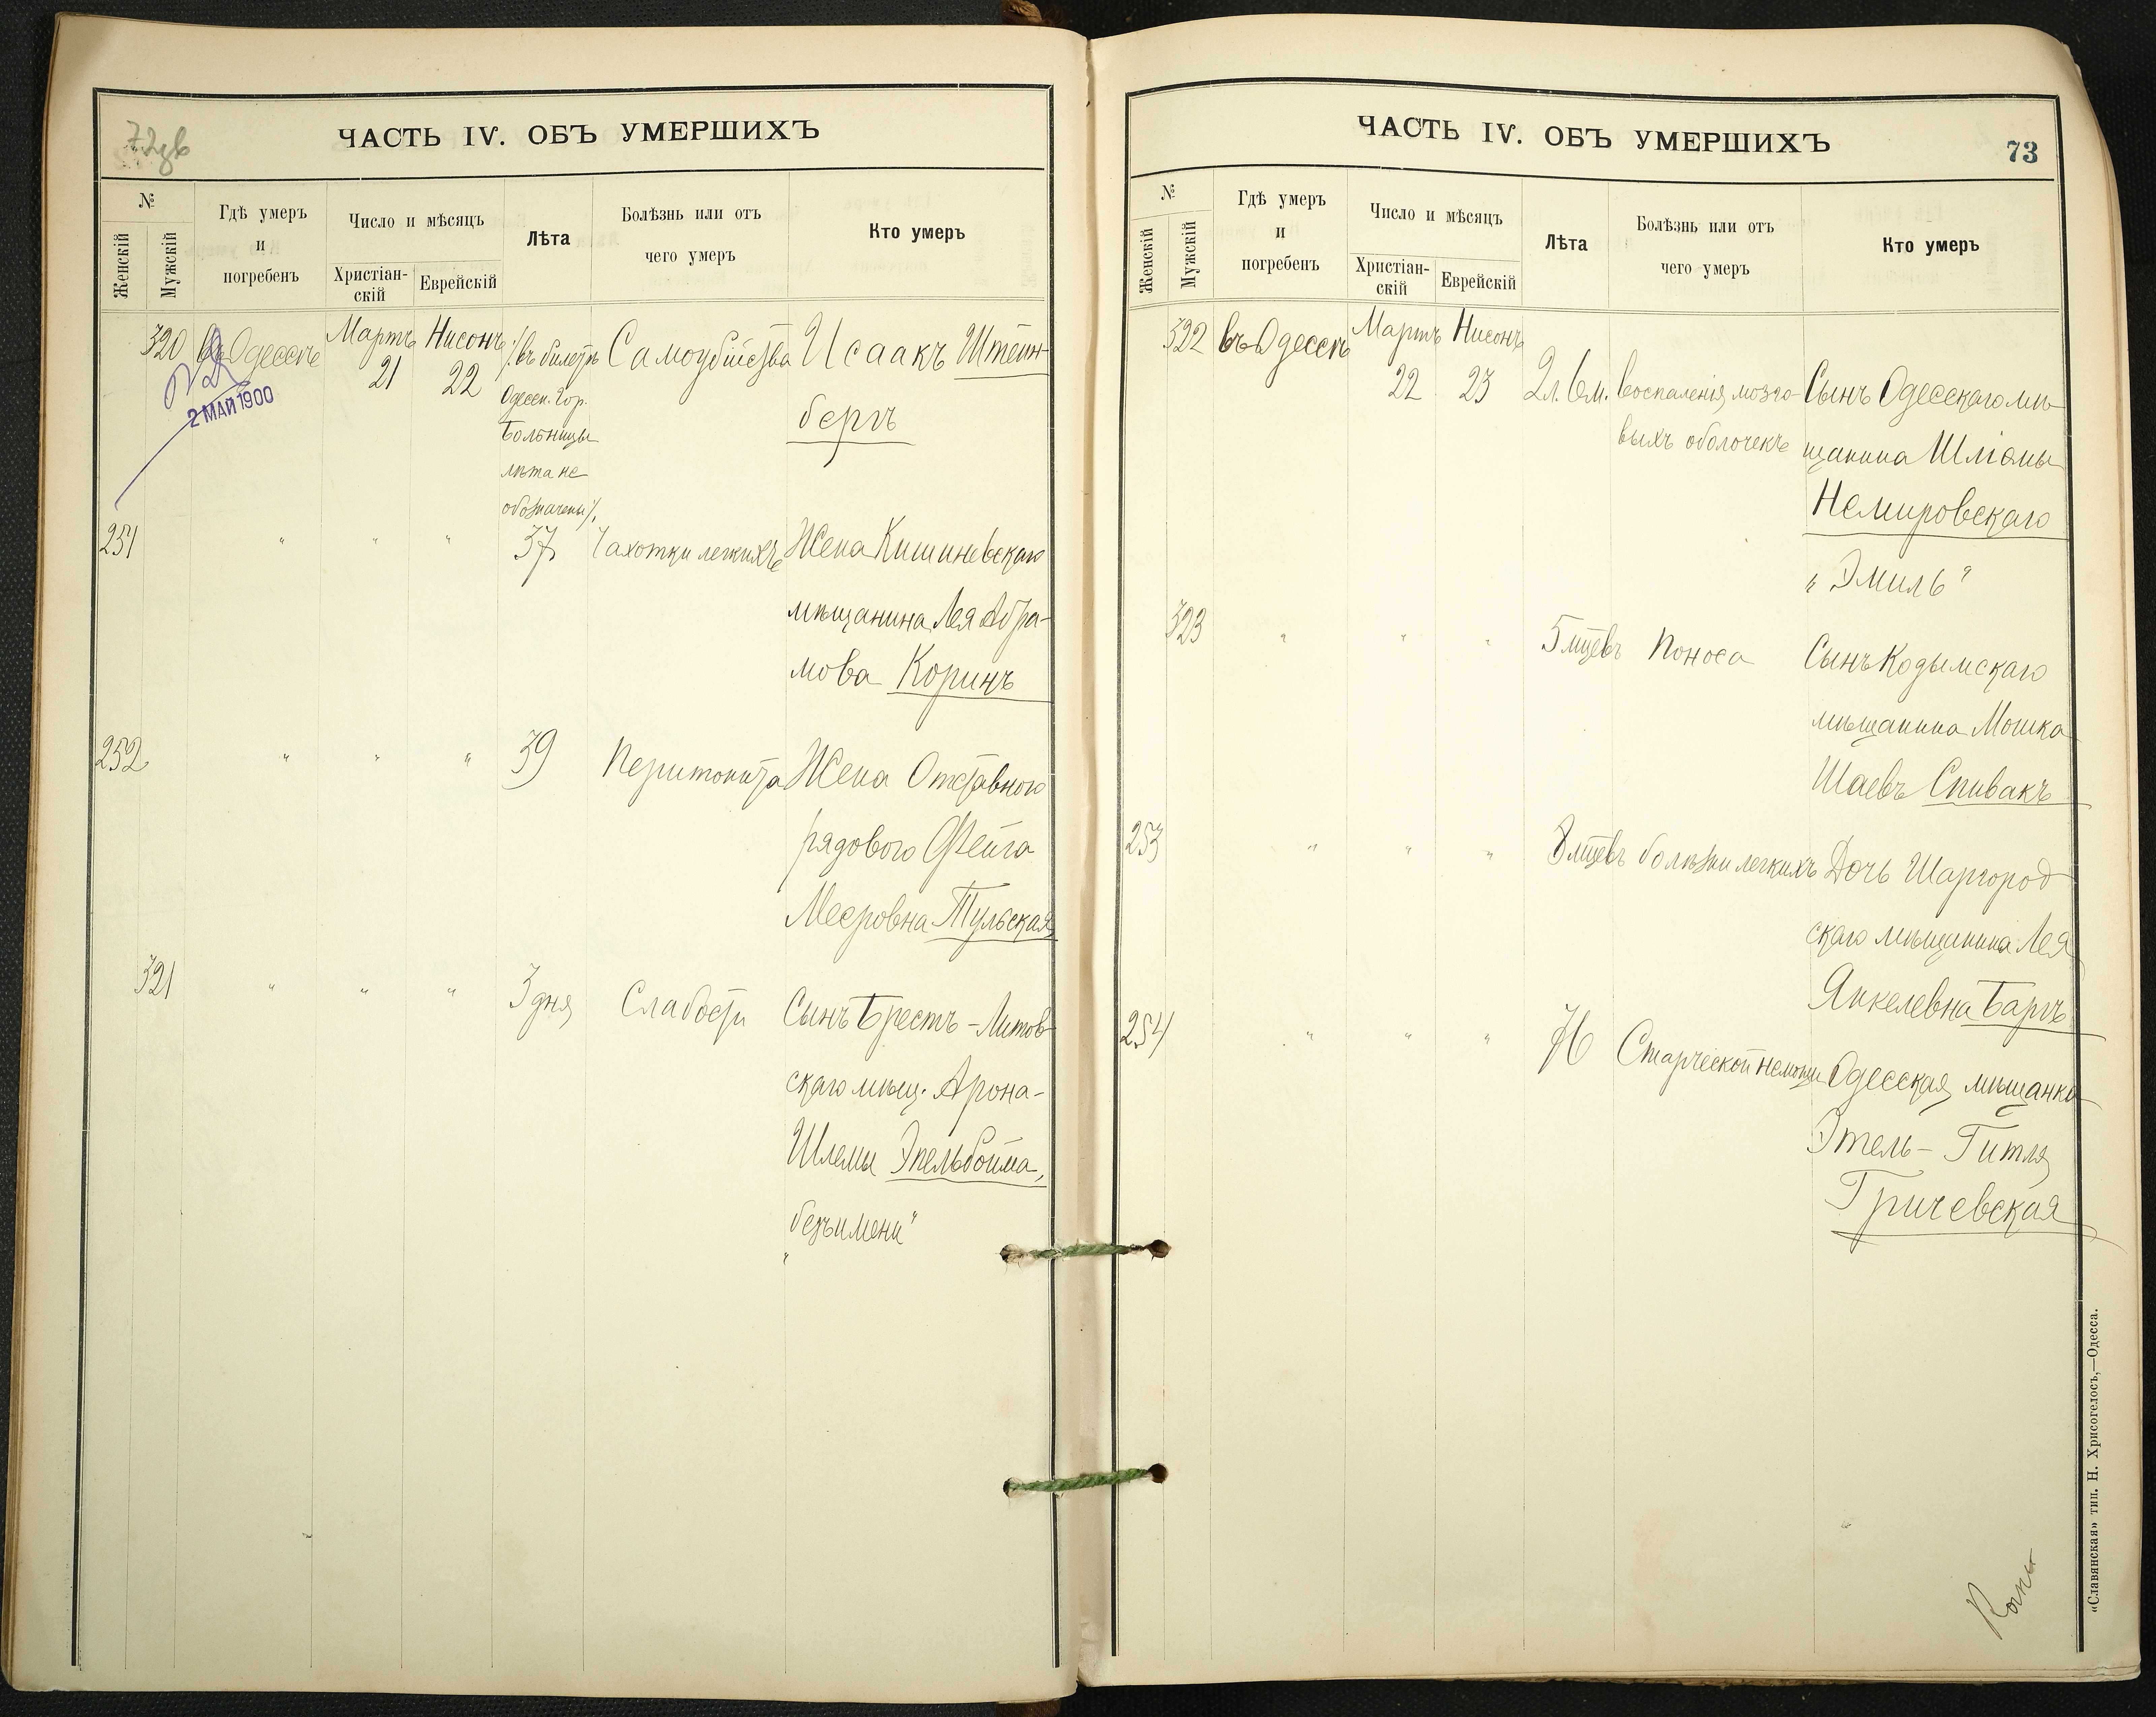 72 зв
ЧАСТЬ IV. ОБЪ УМЕРШИХЪ
№
Женскій
Мужскій
Гдѣ умеръ
и
погребенъ
Число и мѣсяцъ
Христіан-
скій
Еврейскій
Лѣта
Болѣзнь или отъ
чего умеръ
Кто умеръ
320 въ Одессѣ Мартъ Нисонъ /въ билетѣ Самоубійства Исаакъ Штейн-
21 22 Одесск. Гор. бергъ
2 МАЙ 1900
Больницы
лѣта не
обозначены/.
251 " " " 37 Чахотки легкихъ Жена Кишиневскаго
мѣщанина Лея Абра-
мова Коринъ
252 " " " 39 Перитонита Жена Отставного
рядового Фейга
Мееровна Тульская
321 " " " 3 дня Слабости Сынъ Брестъ-Литов
скаго мѣщ. Арона-
Шлемы Эпельбойма,
"безъимени"
ЧАСТЬ IV. ОБЪ УМЕРШИХЪ
73
№
Женскій
Мужскій
Гдѣ умеръ
и
погребенъ
Число и мѣсяцъ
Христіан-
скій
Еврейскій
Лѣта
Болѣзнь или отъ
чего умеръ
Кто умеръ
322 въ Одессѣ Мартъ Нисонъ
22 23 2л. 6м. Воспаленія мозго- Сынъ Одесскаго мѣ-
выхъ оболочекъ щанина Шліомы
Немировскаго
"Эмиль"
323 " " " 5 мцевъ Поноса Сынъ Кодымскаго
мѣщанина Мошка
Шаевъ Спивакъ
253 " " " 8 мцевъ болѣзни легкихъ Дочь Шаргород
скаго мѣщанина Лея
Янкелевна Баргъ
254 " " " 76 Старческой немощи Одесская мѣщанка
Этель-Гитля
Гричевская
«Славянская» тип. Н. Хрисогелосъ,—Одесса.